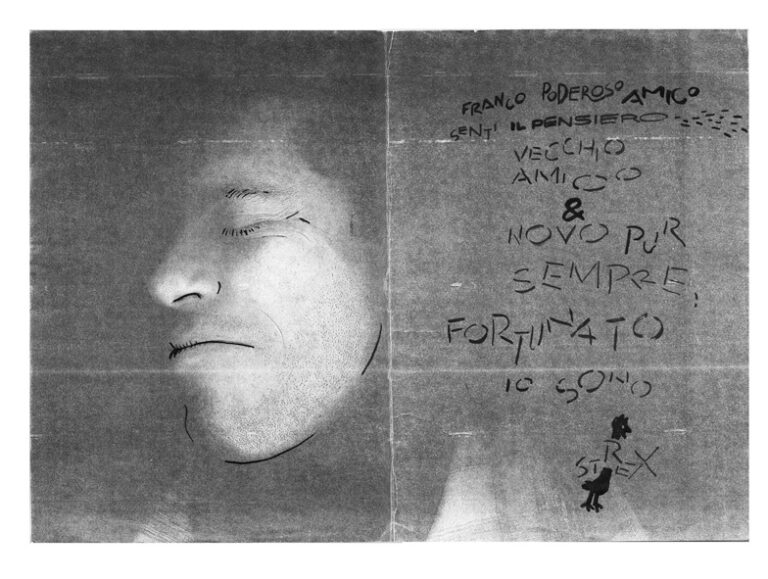 FRANCO PODEROSO AMICO
SENTI IL PENSIERO
VECCHIO
AMICO
&
NOVO PUR
SEMPRE,
FORTUNATO
IO SONO
STREX